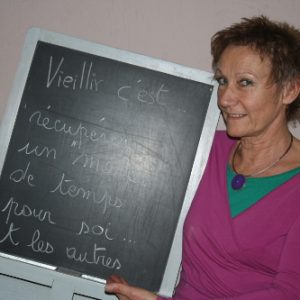 Vieillir c'est...
récupérer
un
de temps
pour soi...
et les autres